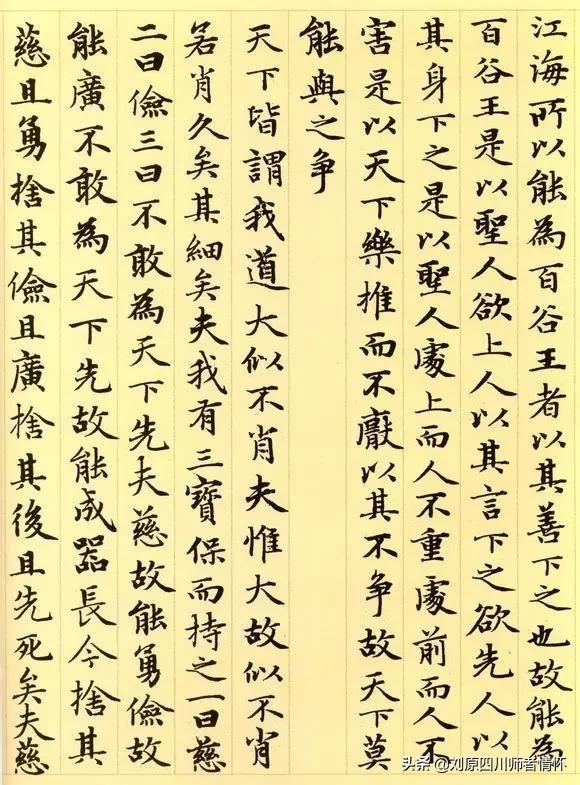 江海所以能為百谷王者以其善下之也故能為
百谷王是以聖人欲上人以其言下之欲先人以
其身下之是以聖人處上而人不重處前而人不
害是以天下樂推而不厭以其不争故天下莫
能與之争
天下皆謂我道大似不肖夫惟大故似不肖
若肖久矣其細矣夫我有三寶保而持之一曰慈
二曰儉三曰不敢為天下先夫慈故能勇儉故
能廣不敢為天下先故能成器長今捨其
慈且勇捨其儉且廣捨其後且先死矣夫慈
头条 @刘原四川师者情怀